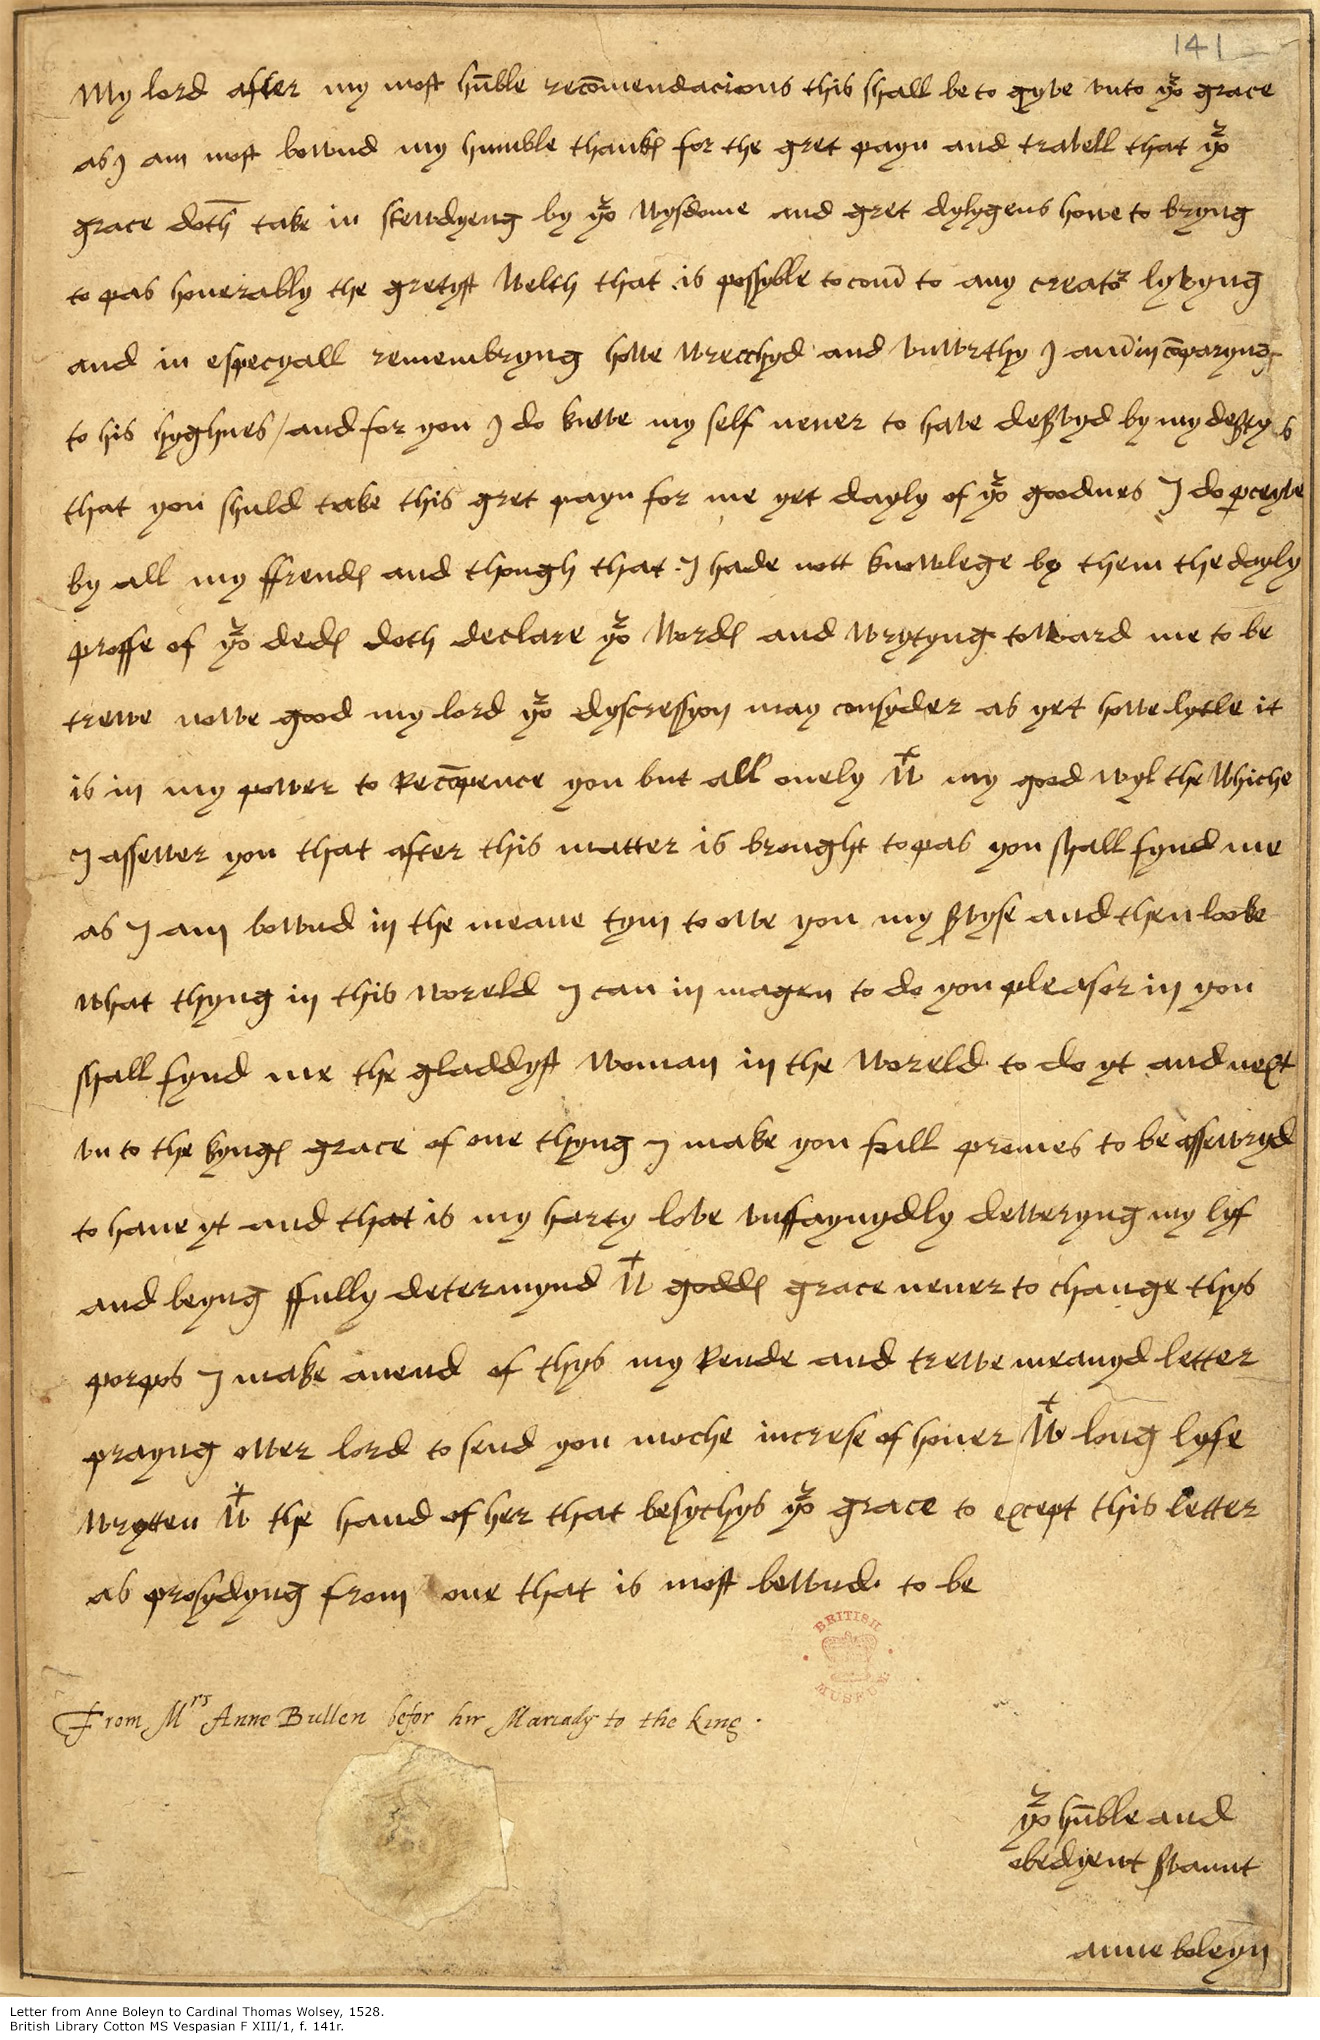 141
My lord after my most hūble recōmendacions this shall be to gyve unto yor grace
as I am most bownd my humble thankes for the gret payn and travell that yor
grace doth take in stewdyeng by yor wysdome and gret dylygens howe to bryng
to pas honerably the gretyst welth that is possyble to com to any creator lyvyng
and in especyall remembryng howe wrecchyd and unwrthy I am in cōparyng
to his hyghnes / and for you I do knowe my self never to have deservyd by my desertys
that you shuld take this gret payn for me yet dayly of yor goodnes I do perceyve
by all my ffrendes and though that I hade nott knowlege by them the dayly
proffe of yor dedes doth declare yor wordes and wrytyng toward me to be
trewe nowe good my lord yor dyscressyon may consyder as yet howe lytle it
is in my power to recōpence you but all onely wt my good wyl the whiche
I assewer you that after this matter is brought to pas you shall fynd me
as I am bownd in the meane tym to owe you my servyse and then looke
what thyng in this woreld I can in magen to do you pleasor in you
shall fynd me the gladdyst woman in the woreld to do yt and next
unto the kynges grace of one thyng I make you full promes to be assewryd
to have yt and that is my harty love unffaynydly deweryng my lyf
and beyng ffully determynd wt goddes grace never to change thys
porpos I make an end of thys my rende and trewe meanyd letter
prayng ower lord to send you moche increse of honer wt long lyfe
wrytten wt the hand of her that besychys yor grace to except this letter
as prosydyng from one that is most bownd to be
BRITISH MUSEUM
From Mrs Anne Bullen befor hir Mariadg to the king.
yor hūble and
obedyent servant
anne boleyn
Letter from Anne Boleyn to Cardinal Thomas Wolsey, 1528.
British Library Cotton MS Vespasian F XIII/1, f. 141r.